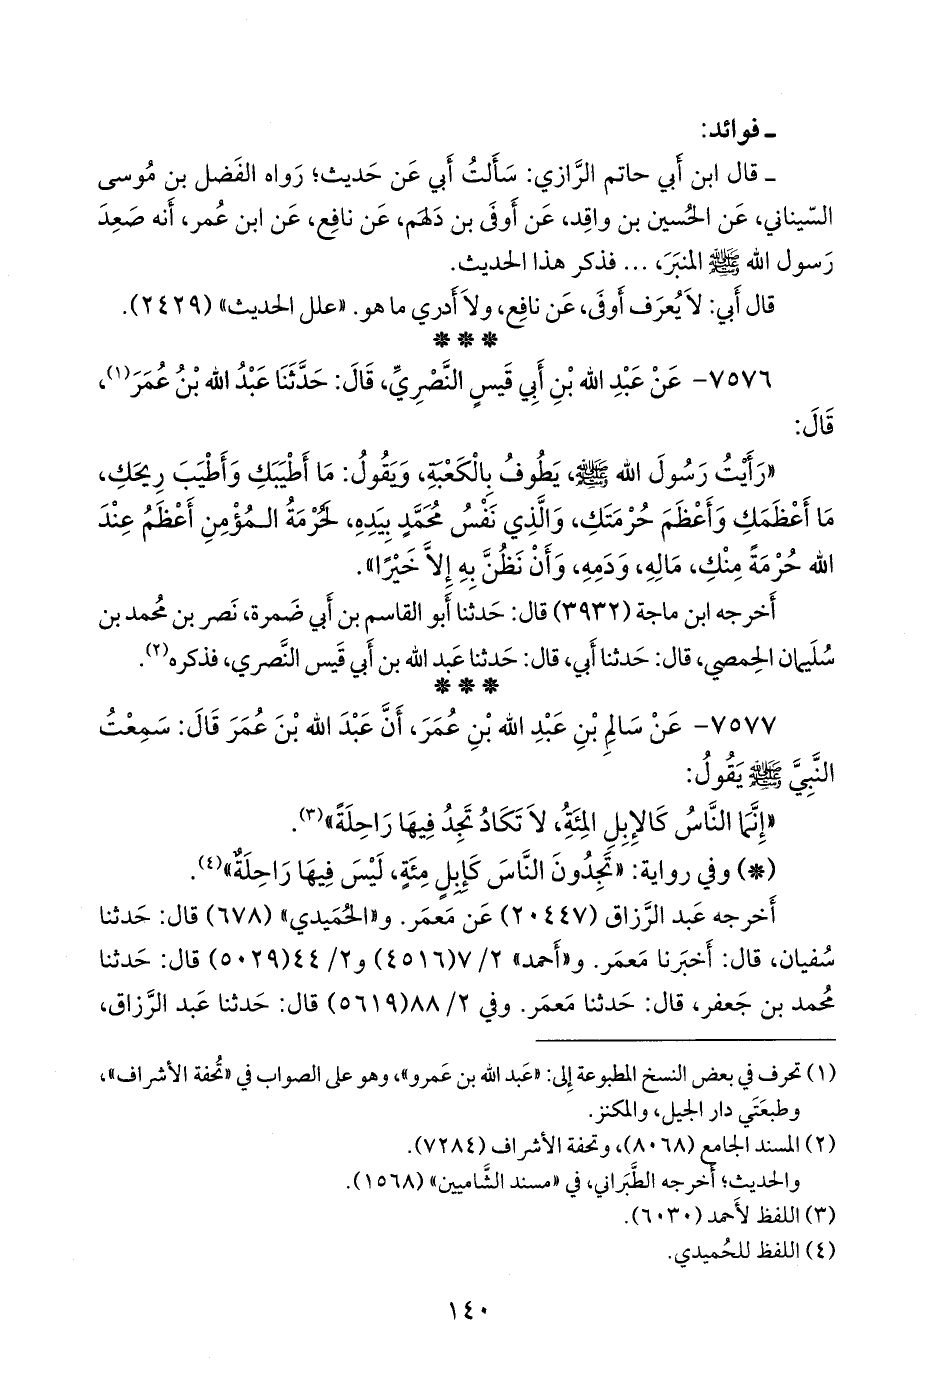 ـ فوائد:
ـ قال ابن أَبي حاتم الرَّازي: سَأَلتُ أَبي عَن حَديث؛ رَواه الفَضل بن مُوسى
السِّيناني، عَن الحُسين بن واقد، عَن أَوفَى بن دَلهَم، عَن نافِع، عَن ابن عُمر، أَنه صَعِدَ
رَسول الله ﷺ المنبَرَ، ... فذكر هذا الحديث.
قال أَبي: لاَ يُعرَف أَوفَى، عَن نافِع، ولاَ أَدري ما هو. «علل الحديث» (٢٤٢٩).
* * *
٧٥٧٦- عَنْ عَبْدِ الله بْنِ أَبِي قَيسٍ النَّصْرِيِّ، قَالَ: حَدَّثَنَا عَبْدُ الله بْنُ عُمَرَ(١)،
قَالَ:
«رَأَيْتُ رَسُولَ الله ﷺ، يَطُوفُ بِالْكَعْبَةِ، وَيَقُولُ: مَا أَطْيَبَكِ وَأَطْيَبَ رِيحَكِ،
مَا أَعْظَمَكِ وَأَعْظَمَ حُرْمَتَكِ، وَالَّذِي نَفْسُ مُحَمَّدٍ بِيَدِهِ، لَحُرْمَةُ الـمُؤْمِنِ أَعْظَمُ عِنْدَ
الله حُرْمَةً مِنْكِ، مَالِهِ، وَدَمِهِ، وَأَنْ نَظُنَّ بِهِ إِلاَّ خَيْرًا».
أَخرجه ابن ماجة (٣٩٣٢) قال: حَدثنا أَبو القاسم بن أَبي ضَمرة، نَصر بن مُحمد بن
سُلَيمان الحِمصي، قال: حَدثنا أَبي، قال: حَدثنا عَبد الله بن أَبي قَيس النَّصري، فذكره(٢).
* * *
٧٥٧٧- عَنْ سَالِمِ بْنِ عَبْدِ الله بْنِ عُمَرَ، أَنَّ عَبْدَ الله بْنَ عُمَرَ قَالَ: سَمِعْتُ
النَّبِيَّ ﷺ يَقُولُ:
«إِنَّمَا النَّاسُ كَالإِبِلِ المِئَةُ، لاَ تَكَادُ تَجِدُ فِيهَا رَاحِلَةً»(٣).
(*) وفي رواية: «تَجِدُونَ النَّاسَ كَإِبِلٍ مِئَةٍ، لَيْسَ فِيهَا رَاحِلَةٌ»(٤).
أَخرجه عَبد الرَّزاق (٢٠٤٤٧) عَن مَعمَر. و«الحُمَيدي» (٦٧٨) قال: حَدثنا
سُفيان، قال: أَخبَرنا مَعمَر. و«أَحمد» ٢/ ٧(٤٥١٦) و٢/ ٤٤(٥٠٢٩) قال: حَدثنا
مُحمد بن جَعفر، قال: حَدثنا مَعمَر. وفي ٢/ ٨٨(٥٦١٩) قال: حَدثنا عَبد الرَّزاق،
(١) تحرف في بعض النسخ المطبوعة إِلى: «عَبد الله بن عَمرو»، وهو على الصواب في «تُحفة الأشراف»،
وطبعَتَي دار الجيل، والمكنز.
(٢) المسند الجامع (٨٠٦٨)، وتحفة الأشراف (٧٢٨٤).
والحديث؛ أَخرجه الطَّبَراني، في «مسند الشَّاميين» (١٥٦٨).
(٣) اللفظ لأَحمد (٦٠٣٠).
(٤) اللفظ للحُميدي.
١٤٠